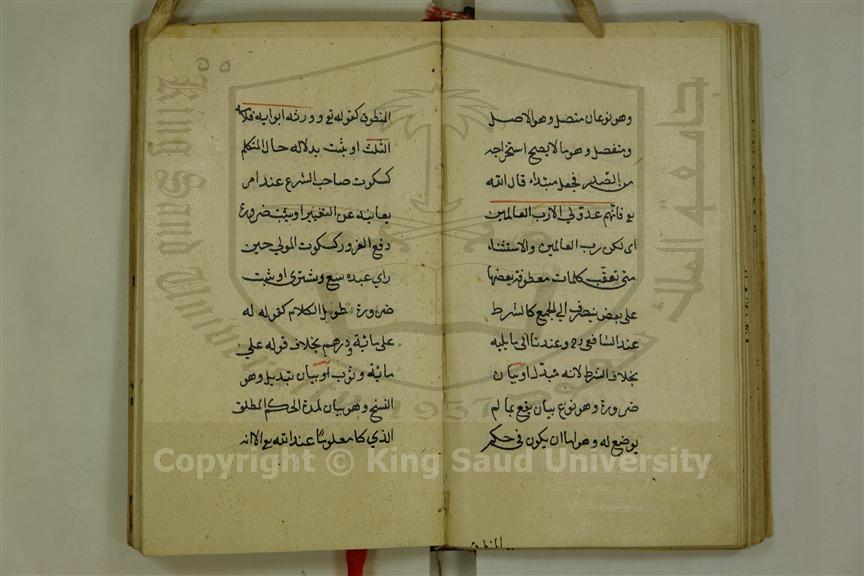 وهو نوعان متصل وهو الاصل
ومنفصل وهو ما لا يصح استخراجه
من الصدر فجعل مبتداء قال الله
تع فانهم عدو لي الا رب العالمين
اى لكن رب العالمين والاستثناء
متى تعقب كلمات معطوفة بعضها
على بعض ينصرف الي الجميع كالشرط
عند الشافعى وعندنا الى ما يليه
بخلاف الشرط لانه مبدل او بيان
ضرورة وهو نوع بيان يقع بما لم
يوضع له وهو اما ان يكون فى حكم
المنطوق كقوله تع وورثه ابواه فلامه
الثلث او يثبت بدلالة حال المتكلم
كسكوت صاحب الشرع عند امر
يعاينه عن التغيير او يثبت ضرورة
دفع الغرور كسكوت المولي حين
راي عبده يبيع ويشترى او يثبت
ضرورة طول الكلام كقوله له
على مائة ودرهم بخلاف قوله علي
مائة وثوب او بيان تبديل وهو
النسخ وهو بيان لمدة الحكم المطلق
الذي كا معلوما عند الله تع الا انه
King Saud University
جامعة الملك
1957
Copyright © King Saud University